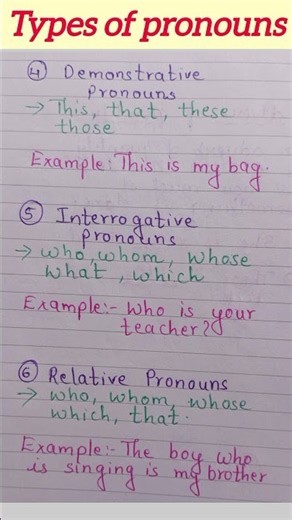 Types of pronouns
④ Demonstrative
Pronouns
→ This, that, these
those
Example: This is my bag.
⑤ Interrogative
pronouns
→ who, whom, whose
what, which
Example:- Who is your
teacher?
⑥ Relative Pronouns
→ who, whom, whose
which, that.
Example:- The boy who
is singing is my brother